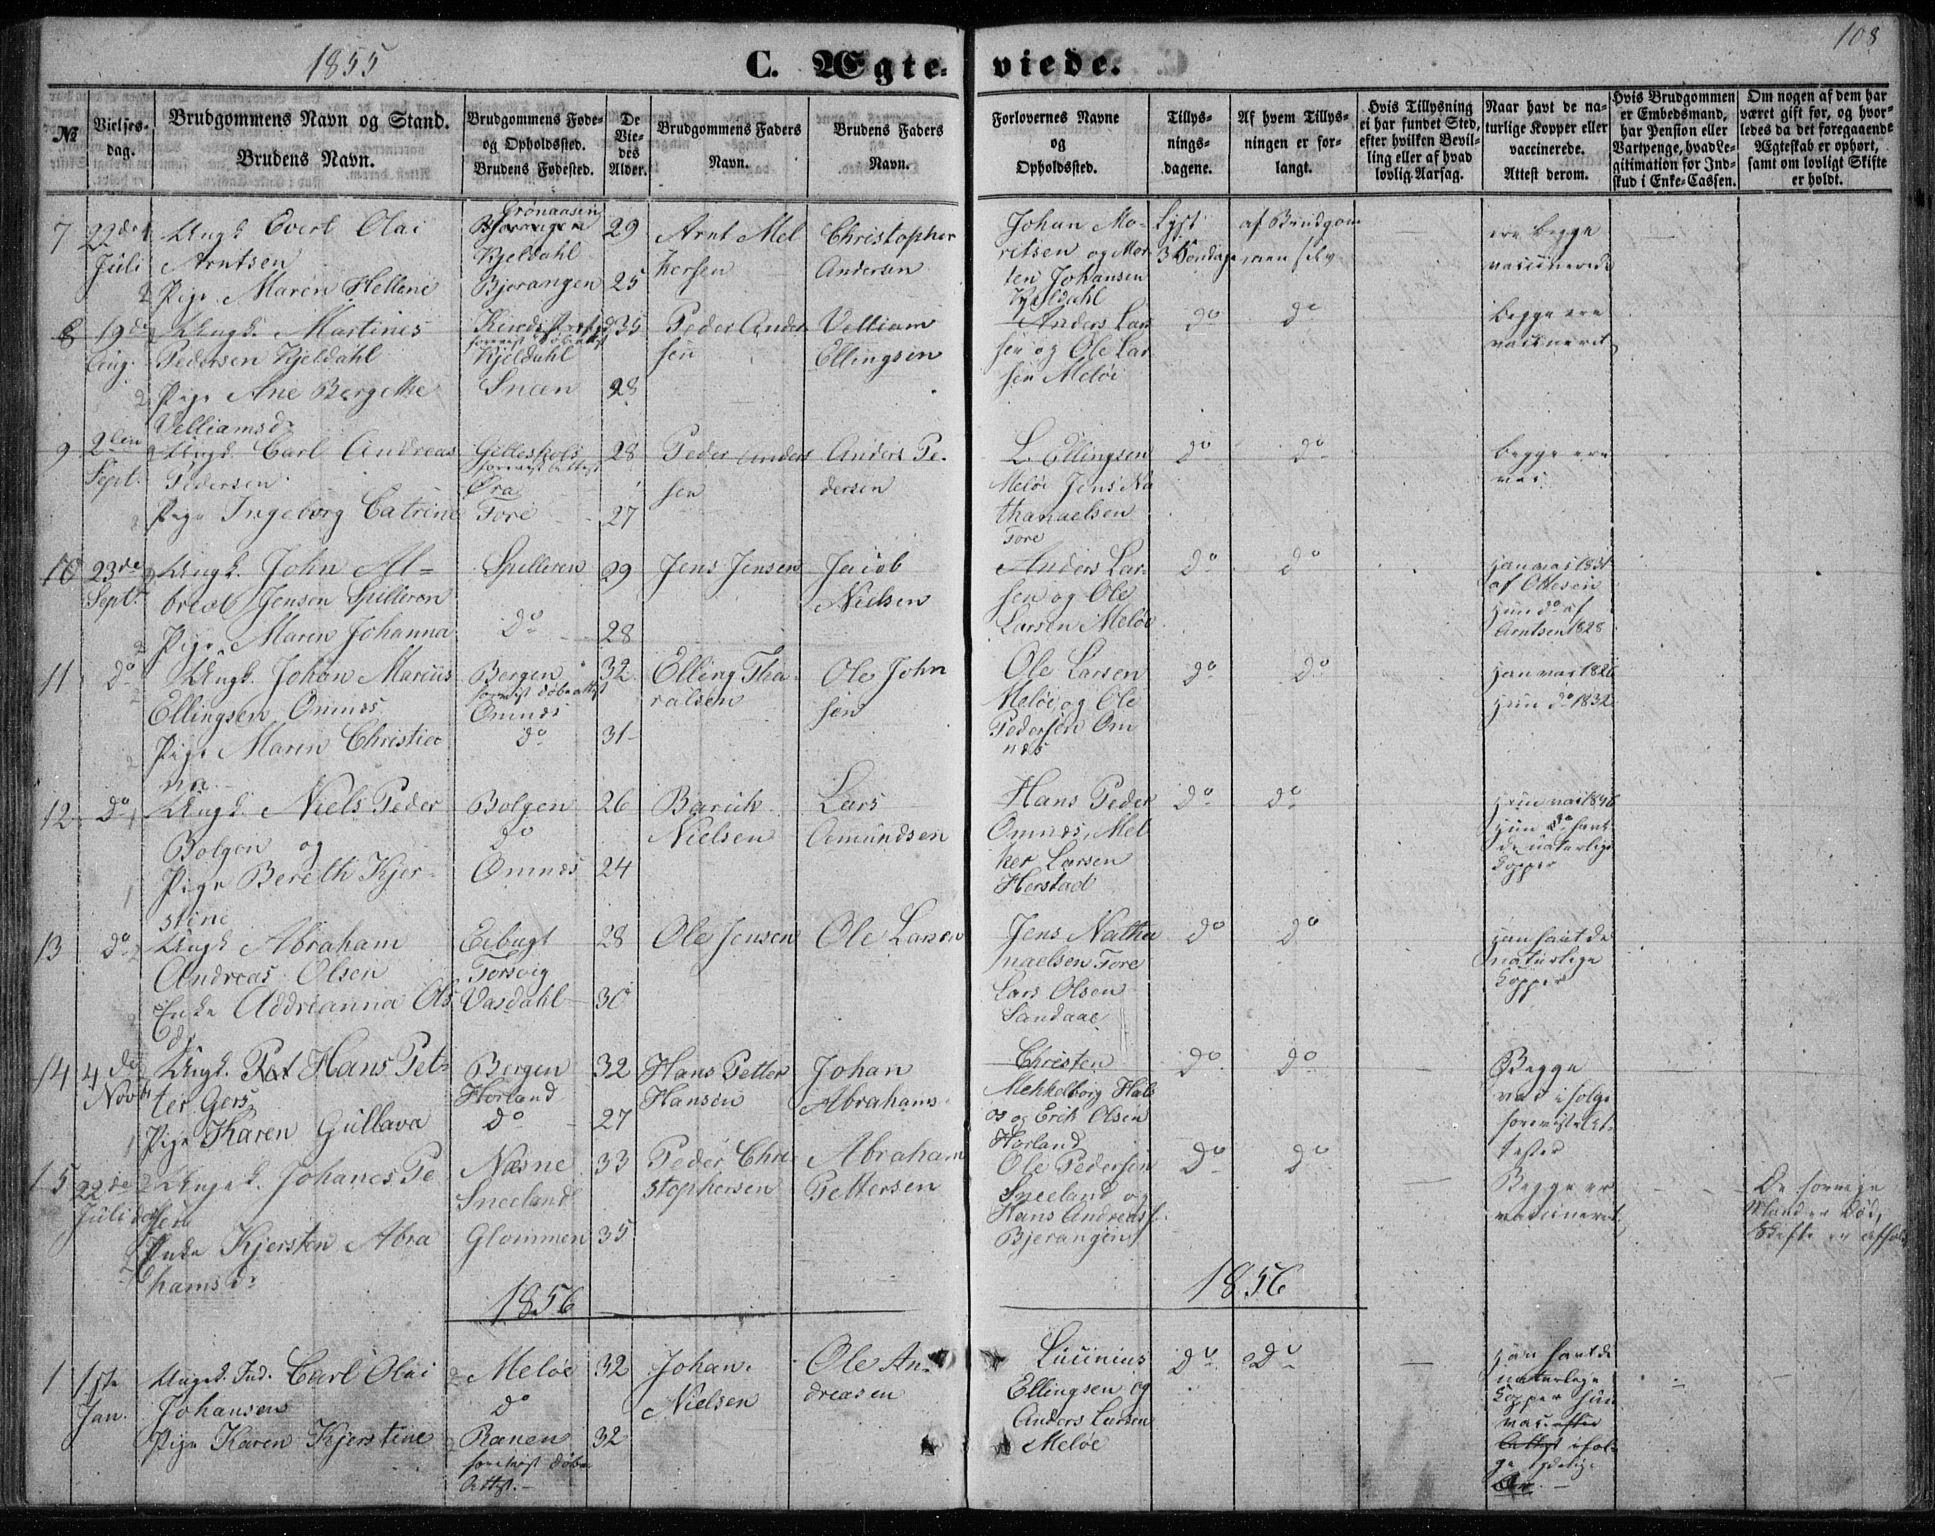 1855
C. Ægteviede.
108
№
Vielses-
dag.
Brudgommens Navn og Stand.
Brudens Navn.
Brudgommens Føde-
og Opholdssted.
Brudens Fødested.
De
Vie-
des
Alder.
Brudgommens Faders
Navn.
Brudens Faders
Navn.
Forlovernes Navne
og
Opholdssted.
Tillys-
nings-
dagene.
Af hvem Tillys-
ningen er for-
langt.
Hvis Tillysning
ei har fundet Sted,
efter hvilken Bevil-
ling eller af hvad
lovlig Aarsag.
Naar havt de na-
turlige Kopper eller
vaccinerede.
Attest derom.
Hvis Brudgommen
er Embedsmand,
har Pension eller
Vartpenge, hvad Le-
gitimation for Ind-
skud i Enke-Cassen.
Om nogen af dem har
været gift før, og hvor-
ledes da det foregaaende
Ægteskab er ophørt,
samt om lovligt Skifte
er holdt.
7
22de
Juli
Ungk. Evert Olai
Arntsen
Pige Maren Hellene
Grønaasen
Kjeldahl
Bjerangen
29
25
Arnt Mel
kersen
Christopher
Andersen
Johan Mo-
retsen og Mor-
ten Johansen
Kjeldahl
Lyst
3 Søndage
af Brudgom
men selv
ere begge
vaccinerede
8
19de
Aug.
Ungk. Martines
Pedersen Kjeldahl
Pige Ane Bergethe
Velliamsdr
forevist døbeattest
Kjeldahl
Sneen
35
28
Peder Ander
sen
Velliam
Ellingsen
Anders Lar
sen og Ole Lar
sen Meløe
do
do
begge ere
vaccineret
9
2den
Sept.
Ungk. Carl Andreas
Pedersen
Pige Ingeborg Catrine
Gilleskols
forevist attest
Øra
Fore
28
27
Peder Anders
sen
Anders Pe-
dersen
L. Ellingsen
Meløe Jens Na
thanaelsen
Fore
do
do
begge ere
vac.
10
23de
Sept.
Ungk. John Al=
breet Jensen Spilleren
Pige Maren Johanna
Spilleren
do
29
28
Jens Jensen
Jacob
Nielsen
Anders Lar-
sen og Ole
Larsen Meløe
do
do
Han vac 1831
af Ottesen
Hun do af
Arntsen 1828
11
do
Ungk. Johan Marius
Ellingsen Omnes
Pige Maren Christia
na
Bergen
forevist døbeattest
Omnes
do
32
31
Elling Tha-
ralsen
Ole John
sen
Ole Larsen
Meløe og Ole
Pedersen Om
nes
do
do
Han vac 1826
Hun do 1832
12
do
Ungk. Niels Peder
Bolgen og
Pige Bereth Kjer-
stine
Bolgen
do
Omnes
26
24
Baruk
Nielsen
Lars
Amundsen
Hans Peder
Omnes, Mel
ker Larsen
Horstad
do
do
de naturlige
Kopper
13
do
Ungk Abraham
Andreas Olsen
Enke Addrianna Ols
dr
Eebugt
Torsvig
Vasdahl
28
30
Ole Jensen
Ole Larsen
Jens Natha
naelsen Fore
Lars Olsen
Sandaae
do
do
Han havt de
naturlige
Kopper
14
4de
Novbr
Ungk. Hans Pet-
ter Gers
Pige Karen Gullava
Bergen
Horland
do
32
27
Hans Petter
Hansen
Johan
Abrahams
Christen
Mehkelborg Hals
os og Erik Olsen
Horland
do
do
Begge
vac ifølge
foreviste At-
tester
15
22de
Juli
Ungk. Johanes Pe
dersen
Enke Kjersten Abra
hamsdr
Næsne
Sneeland
Glommen
33
35
Peder Chri
stophersen
Abraham
Pettersen
Ole Pedersen
Sneeland og
Hans Andreas
Bjerangen
do
do
Begge er
vaccineret
De forrige
Mand er død,
Skifte er afholdt
1856
1856
1
1ste
Jan.
Ungk. Ind. Carl Olai
Johansen
Pige Karen Kjerstine
Meløe
do
Ranen
forevist døbe
Attest.
32
32
Johan
Nielsen
Ole An-
dreasen
Lucinius
Ellingsen og
Anders Larsen
Meløe
do
do
Han havt de
naturlige
Kopper hun
vac. efter
Attest iføl-
ge tydelige
Ar